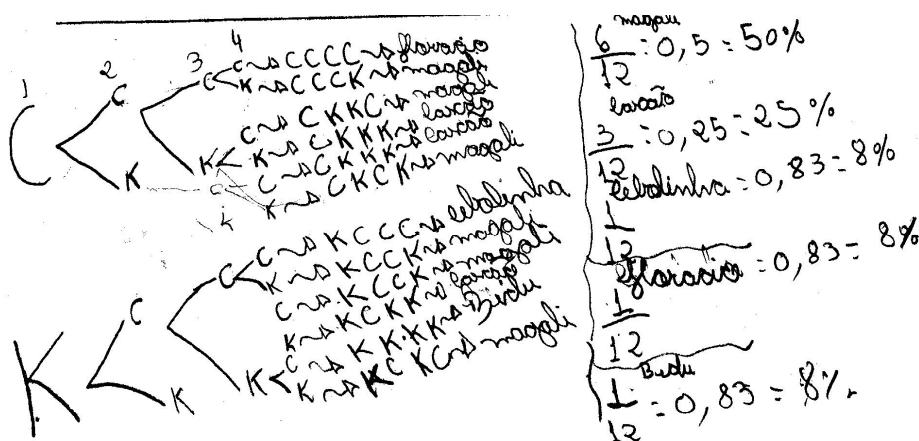 1 2 3 4
C C C C ~> CCCC ~> floração
K ~> CCCK ~> magali
C ~> CKKC ~> magali
K K ~> CKKK ~> cascão
C ~> CKKK ~> cascão
K K ~> CKCK ~> magali
C
K
K C C C ~> KCCC ~> cebolinha
K ~> KCCK ~> magali
C ~> KCCK ~> magali
K ~> KCKK ~> cascão
C ~> KKKK ~> Bidu
K K K ~> KCKC ~> magali
magali
6/12 = 0,5 = 50%
cascão
3/12 = 0,25 = 25%
cebolinha = 0,83 = 8%
1/12
floracão = 0,83 = 8%
1/12
Bidu
1/12 = 0,83 = 8%.